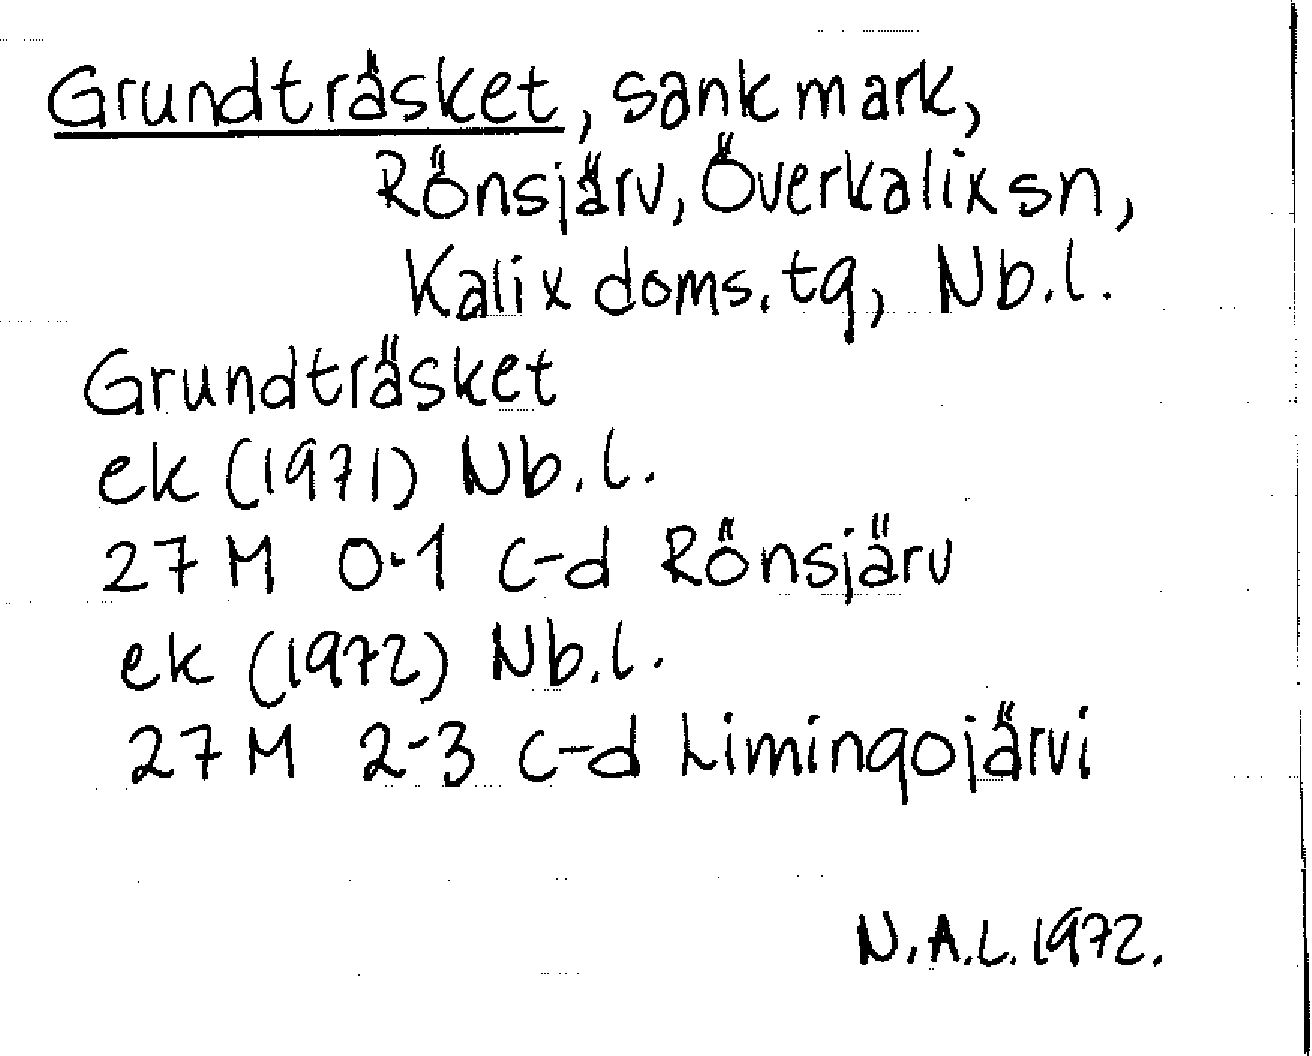 Grundträsket, sank mark,
Rönsjärv, Överkalix sn,
Kalix doms. tg, Nb.l.
Grundträsket
ek (1971) Nb.l.
27 M 0-1 c-d Rönsjärv
ek (1972) Nb.l.
27 M 2-3 c-d Limingojärvi
N.A.L. 1972.